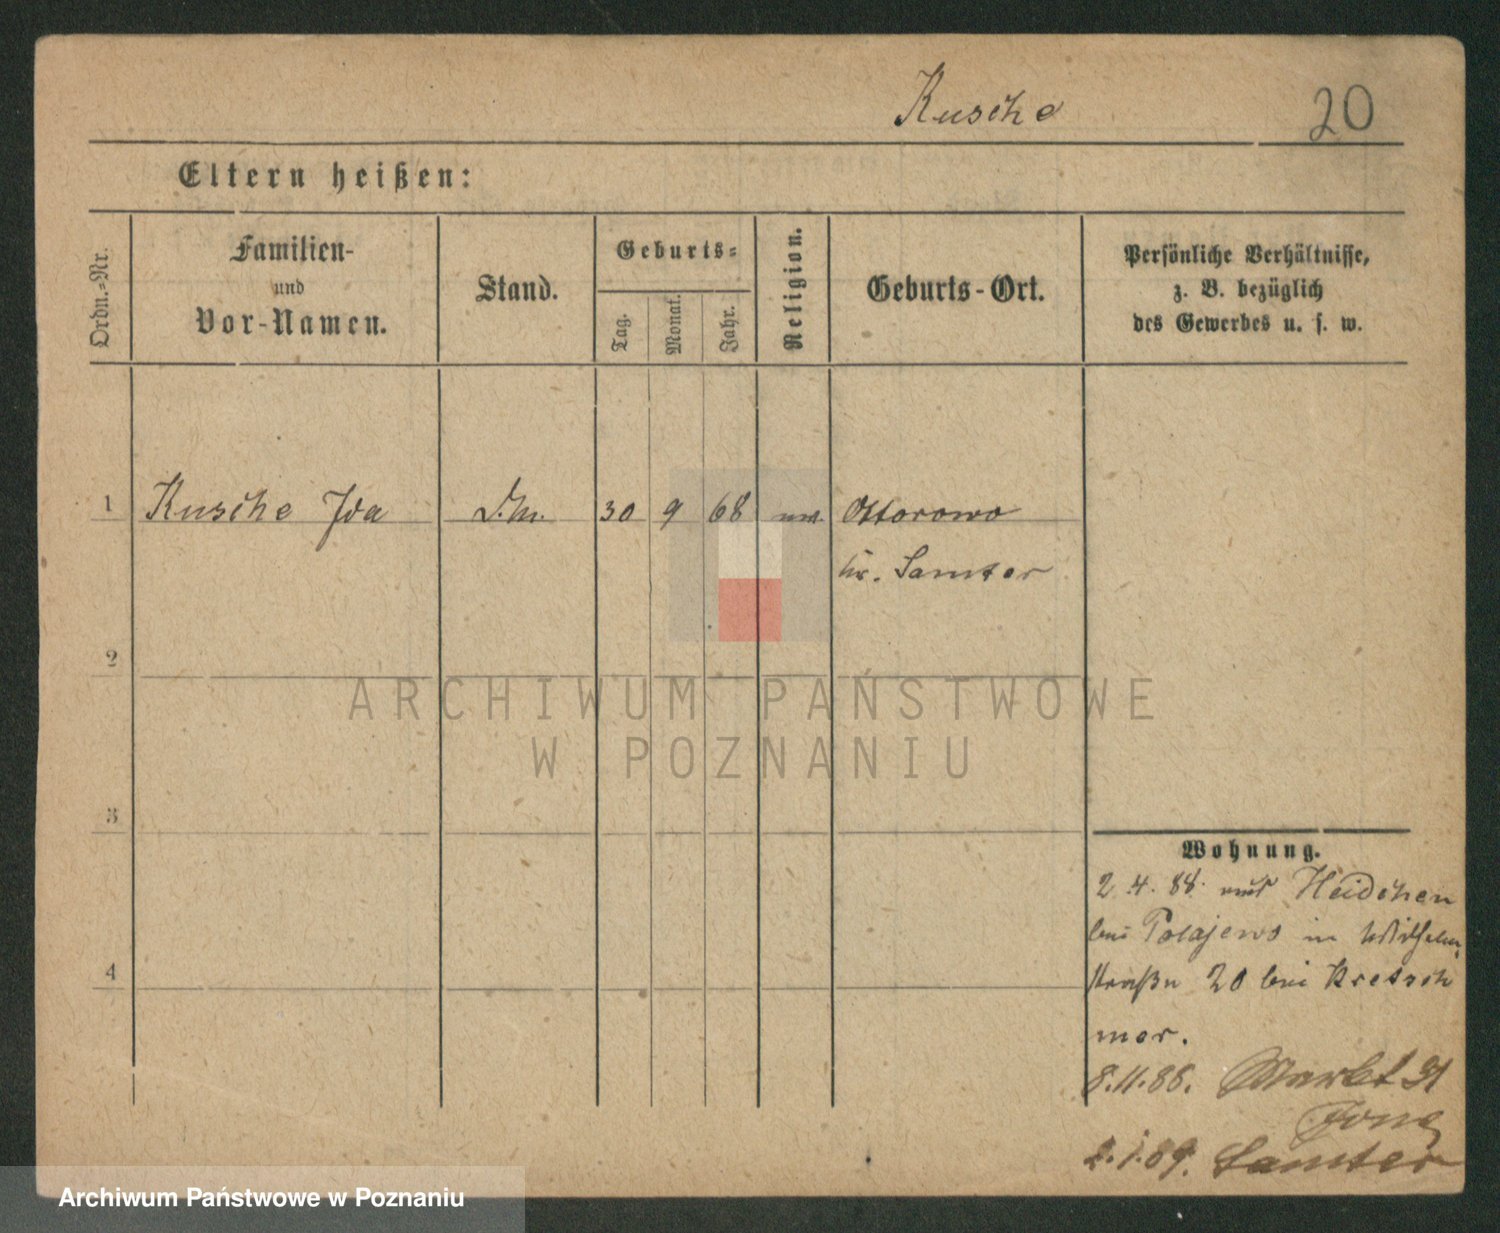 Kusche 20
Eltern heißen:
Ordn.=Nr.
Familien-
und
Vor-Namen.
Stand.
Geburts=
Tag.
Monat.
Jahr.
Religion.
Geburts-Ort.
Persönliche Verhältnisse,
z. B. bezüglich
des Gewerbes u. s. w.
1 Kusche Ida D.M. 30 9 68 Ottorowo
Kr. Samter
2
3
4
Wohnung.
2.4.88. aus Heidchen
bei Polajewo in Wilhelm
straße 20 bei Kretsch
mer.
8.11.88. Markt 91
2.1.89. Samter
ARCHIWUM PAŃSTWOWE
W POZNANIU
Archiwum Państwowe w Poznaniu